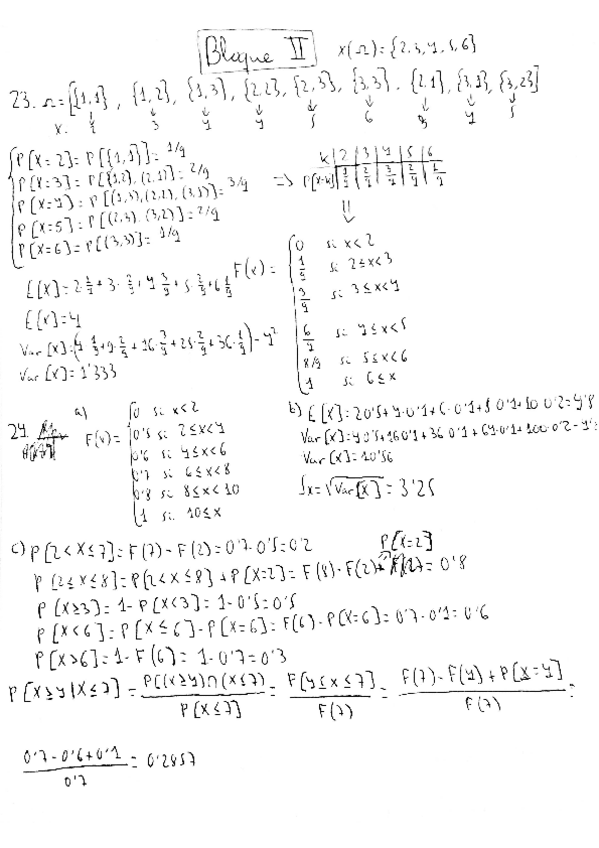 Bloque II
X(Ω)={2,3,4,5,6}
23. Ω=[{1,1}, {1,2}, {1,3}, {2,2}, {2,3}, {3,3}, {2,1}, {3,1}, {3,2}]
X.
3 4 4 5 6 3 4 5
P[X=2]=P[{1,1}]=1/9
P[X=3]=P[(1,2),(2,1)]=2/9
P[X=4]=P[(1,3),(2,2),(3,1)]=3/9
P[X=5]=P[(2,3),(3,2)]=2/9
P[X=6]=P[(3,3)]=1/9
=> K | 2 | 3 | 4 | 5 | 6
P[X=K] | 1/9 | 2/9 | 3/9 | 2/9 | 1/9
⇓
F(x)=
0 si x<2
1/9 si 2≤x<3
3/9 si 3≤x<4
6/9 si 4≤x<5
8/9 si 5≤x<6
1 si 6≤x
E[X]=2·1/9+3·2/9+4·3/9+5·2/9+6·1/9
E[X]=4
Var[X]=(4·1/9+9·2/9+16·3/9+25·2/9+36·1/9)-4²
Var[X]=1'333
24.
a) F(x)=
0 si x<2
0'5 si 2≤x<4
0'6 si 4≤x<6
0'7 si 6≤x<8
0'8 si 8≤x<10
1 si 10≤x
b) E[X]=2·0'5+4·0'1+6·0'1+8·0'1+10·0'2=4'8
Var[X]=4·0'5+16·0'1+36·0'1+64·0'1+100·0'2-4'8²
Var[X]=10'56
=√Var[X]=3'25
c) P[2<X≤7]=F(7)-F(2)=0'7-0'5=0'2
P[X=2]
P[2≤X≤8]=P[2<X≤8]+P[X=2]=F(8)-F(2)+ =0'8
P[X≥3]=1-P[X<3]=1-0'5=0'5
P[X<6]=P[X≤6]-P[X=6]=F(6)-P[X=6]=0'7-0'1=0'6
P[X>6]=1-F(6)=1-0'7=0'3
P[X≥4|X≤7]=P[(X≥4)∩(X≤7)]/P[X≤7]=F[4≤X≤7]/F(7)=F(7)-F(4)+P[X=4]/F(7)=
0'7-0'6+0'1/0'7=0'2857